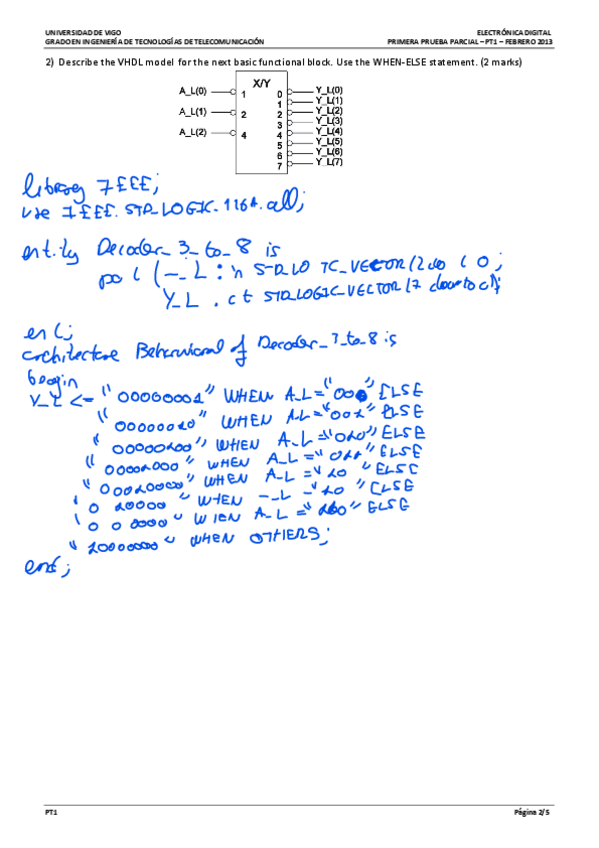 UNIVERSIDAD DE VIGO ELECTRÓNICA DIGITAL
GRADO EN INGENIERÍA DE TECNOLOGÍAS DE TELECOMUNICACIÓN PRIMERA PRUEBA PARCIAL – PT1 – FEBRERO 2013
2) Describe the VHDL model for the next basic functional block. Use the WHEN-ELSE statement. (2 marks)
X/Y
A_L(0) 1 0 Y_L(0)
1 Y_L(1)
A_L(1) 2 2 Y_L(2)
3 Y_L(3)
A_L(2) 4 4 Y_L(4)
5 Y_L(5)
6 Y_L(6)
7 Y_L(7)
library IEEE;
use IEEE.STD_LOGIC_1164.all;
entity Decoder_3_to_8 is
_L : STD_LO
Y_L STD_LOGIC_VECTOR (7 downto
architecture Behavioral of Decoder_3_to_8 is
begin
Y_L <= "00000001" WHEN A_L="000" ELSE
"00000010" WHEN A_L="001" ELSE
"00000100" WHEN A_L="010" ELSE
"00001000" WHEN A_L="011" ELSE
"00010000" WHEN A_L="10 " ELSE
WHEN ELSE
A_L= ELSE
"10000000" WHEN OTHERS;
end;
PT1 Página 2/5